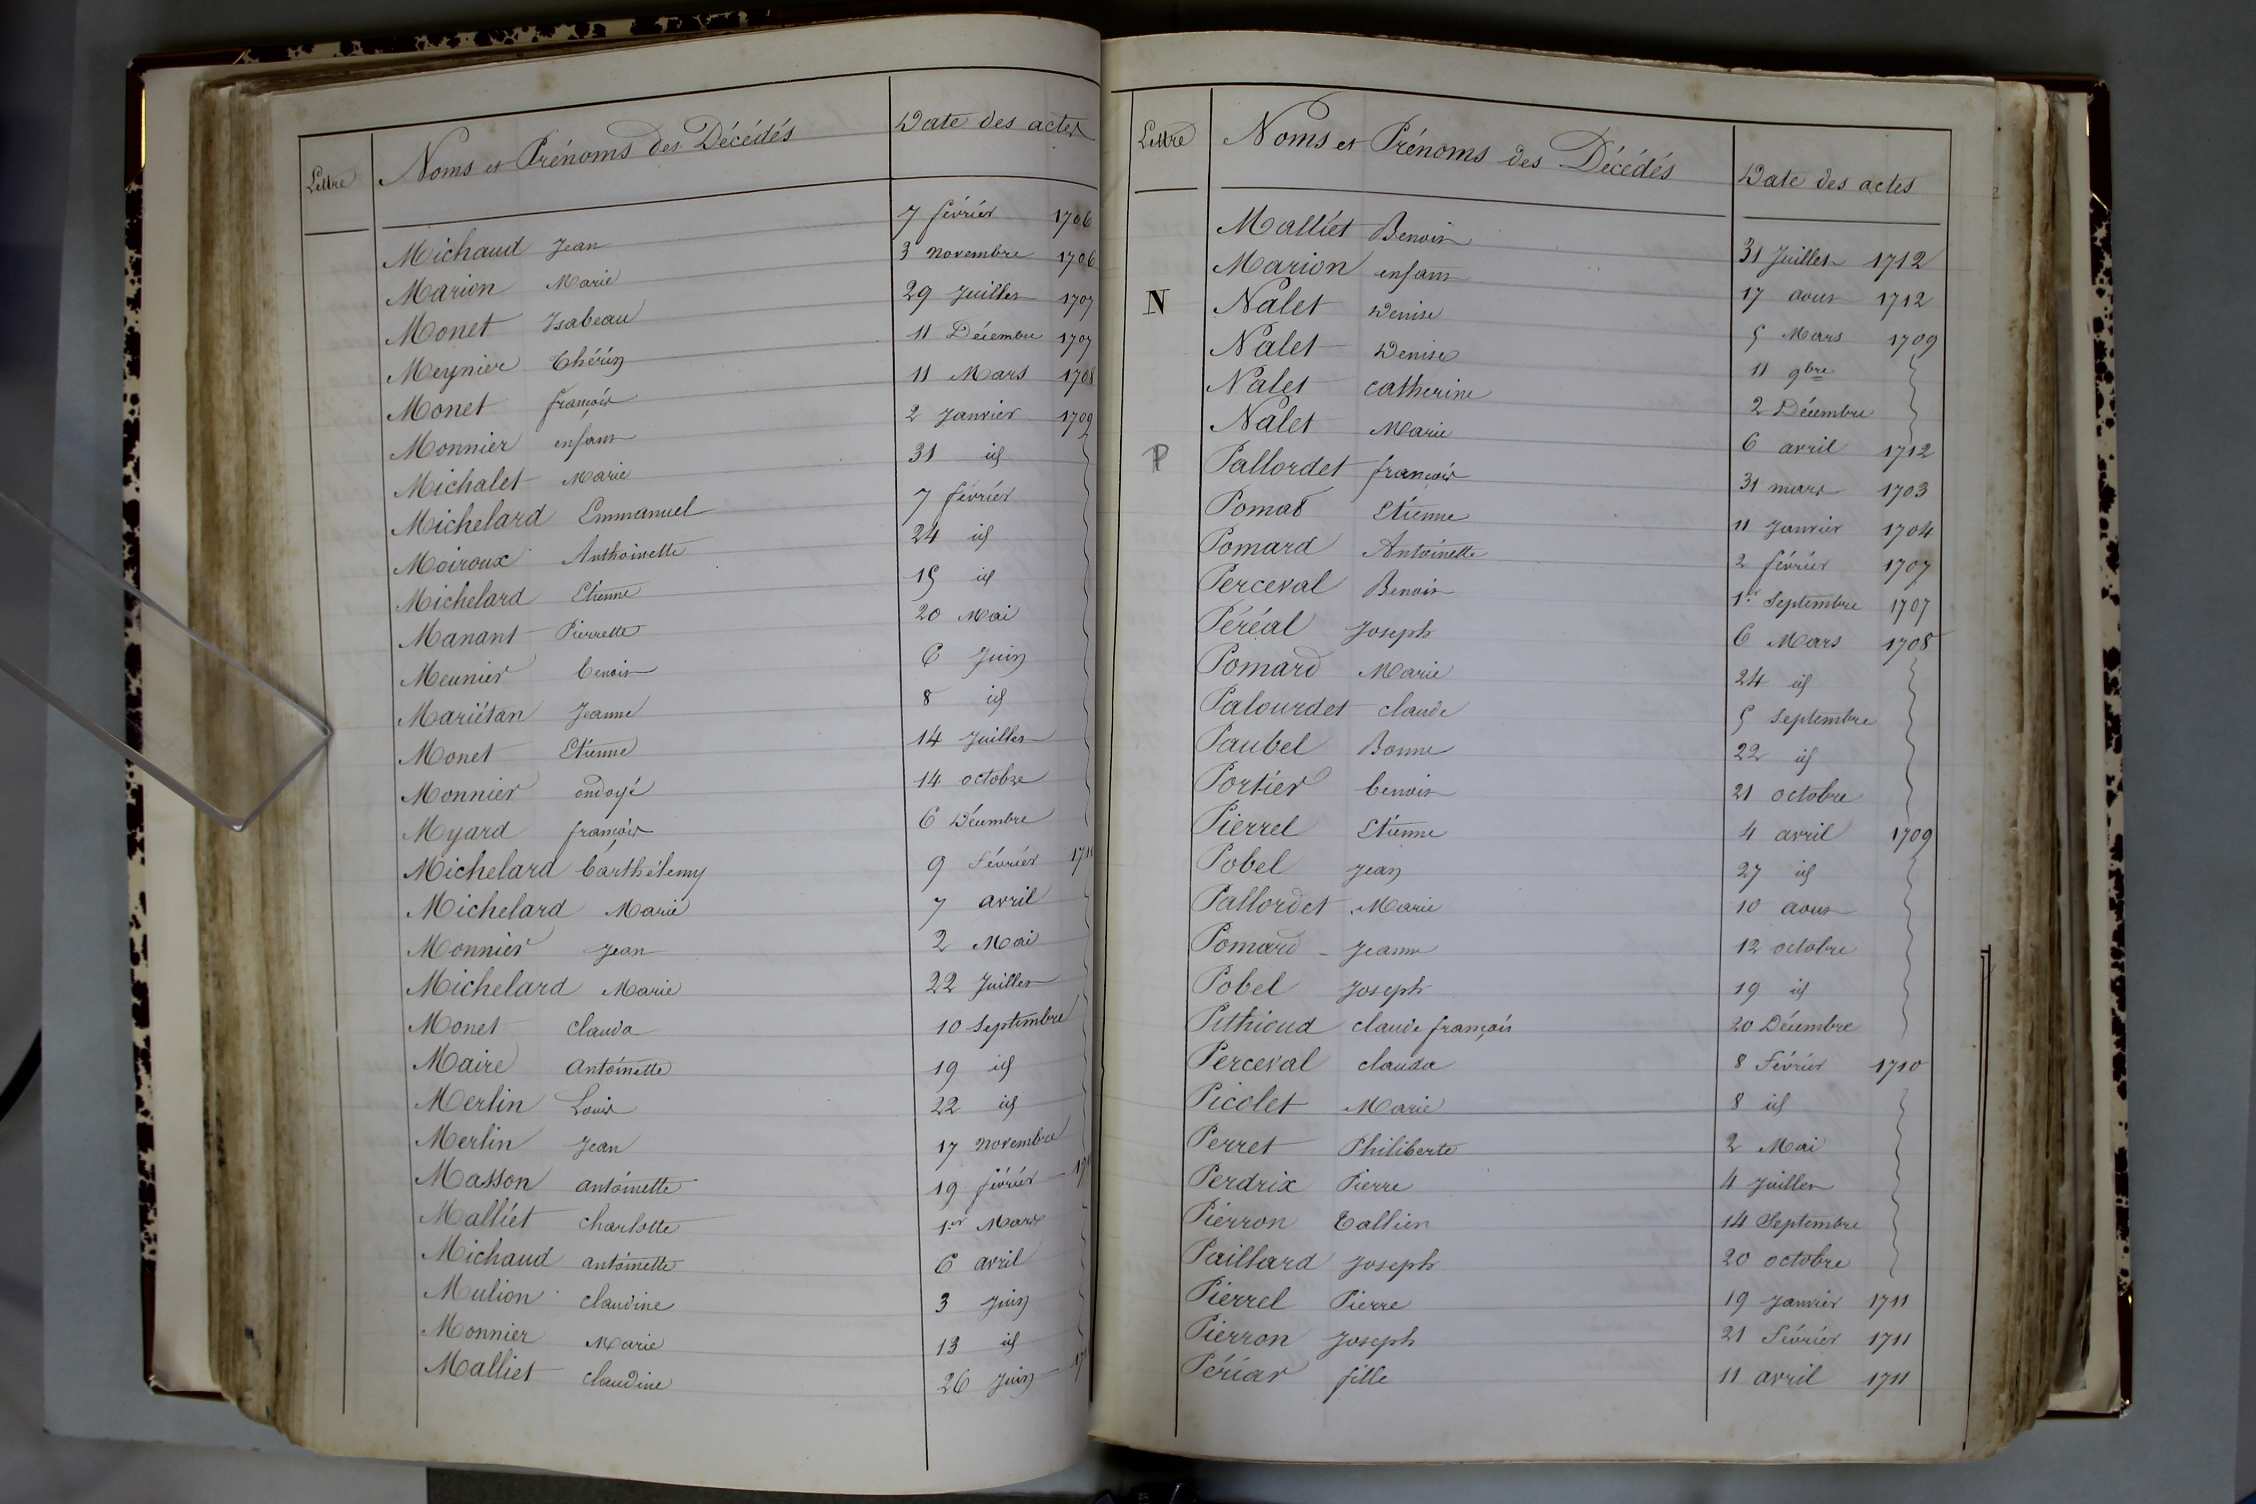 Lettre Noms et Prénoms des Décédés Date des actes
Michaud Jean 7 février 1706
Marion Marie 3 novembre 1706
Monet Isabeau 29 Juillet 1707
Meynier Thérèse 11 Décembre 1707
Monet françois 11 Mars 1708
Monnier enfant 2 Janvier 1709
Michalet Marie 31 id
Michelard Emmanuel 7 février
Moiroux Anthoinette 24 id
Michelard Etienne 15 id
Manant Pierrette 20 Mai
Meunier benoit 6 Juin
Mariétan Jeanne 8 id
Monet Etienne 14 Juillet
Monnier ondoyé 14 octobre
Myard françois 6 Décembre
Michelard barthélemy 9 Février
Michelard Marie 7 avril
Monnier Jean 2 Mai
Michelard Marie 22 Juillet
Monet clauda 10 Septembre
Maire Antoinette 19 id
Merlin Louis 22 id
Merlin Jean 17 novembre
Masson antoinette 19 février
Malliet charlotte 1er Mars
Michaud antoinette 6 avril
Mulion claudine 3 Juin
Monnier Marie 13 id
Malliet claudine 26 Juin
Lettre Noms et Prénoms des Décédés Date des actes
Malliet Benoit 31 Juillet 1712
Marion enfant 17 aout 1712
N Nalet Denise 5 Mars 1709
Nalet Denise 11 9bre
Nalet catherine 2 Décembre
Nalet Marie 6 avril 1712
P Pallordet françois 31 mars 1703
Pomar Etienne 11 Janvier 1704
Pomard Antoinette 2 février 1707
Perceval Benoit 1er Septembre 1707
Péréal Joseph 6 Mars 1708
Pomard Marie 24 id
Palourdet claude 5 Septembre
Paubel Bonne 22 id
Portier benoit 21 octobre
Pierrel Etienne 4 avril 1709
Pobel Jean 27 id
Pallordet Marie 10 aout
Pomard Jeanne 12 octobre
Pobel Joseph 19 id
Pethioud claude françois 20 Décembre
Perceval clauda 8 Février 1710
Picolet Marie 8 id
Perret Philiberte 2 Mai
Perdrix Pierre 4 Juillet
Pierron Tallien 14 Septembre
Paillard Joseph 20 octobre
Pierrel Pierre 19 Janvier 1711
Pierron Joseph 21 Février 1711
Périar fille 11 avril 1711